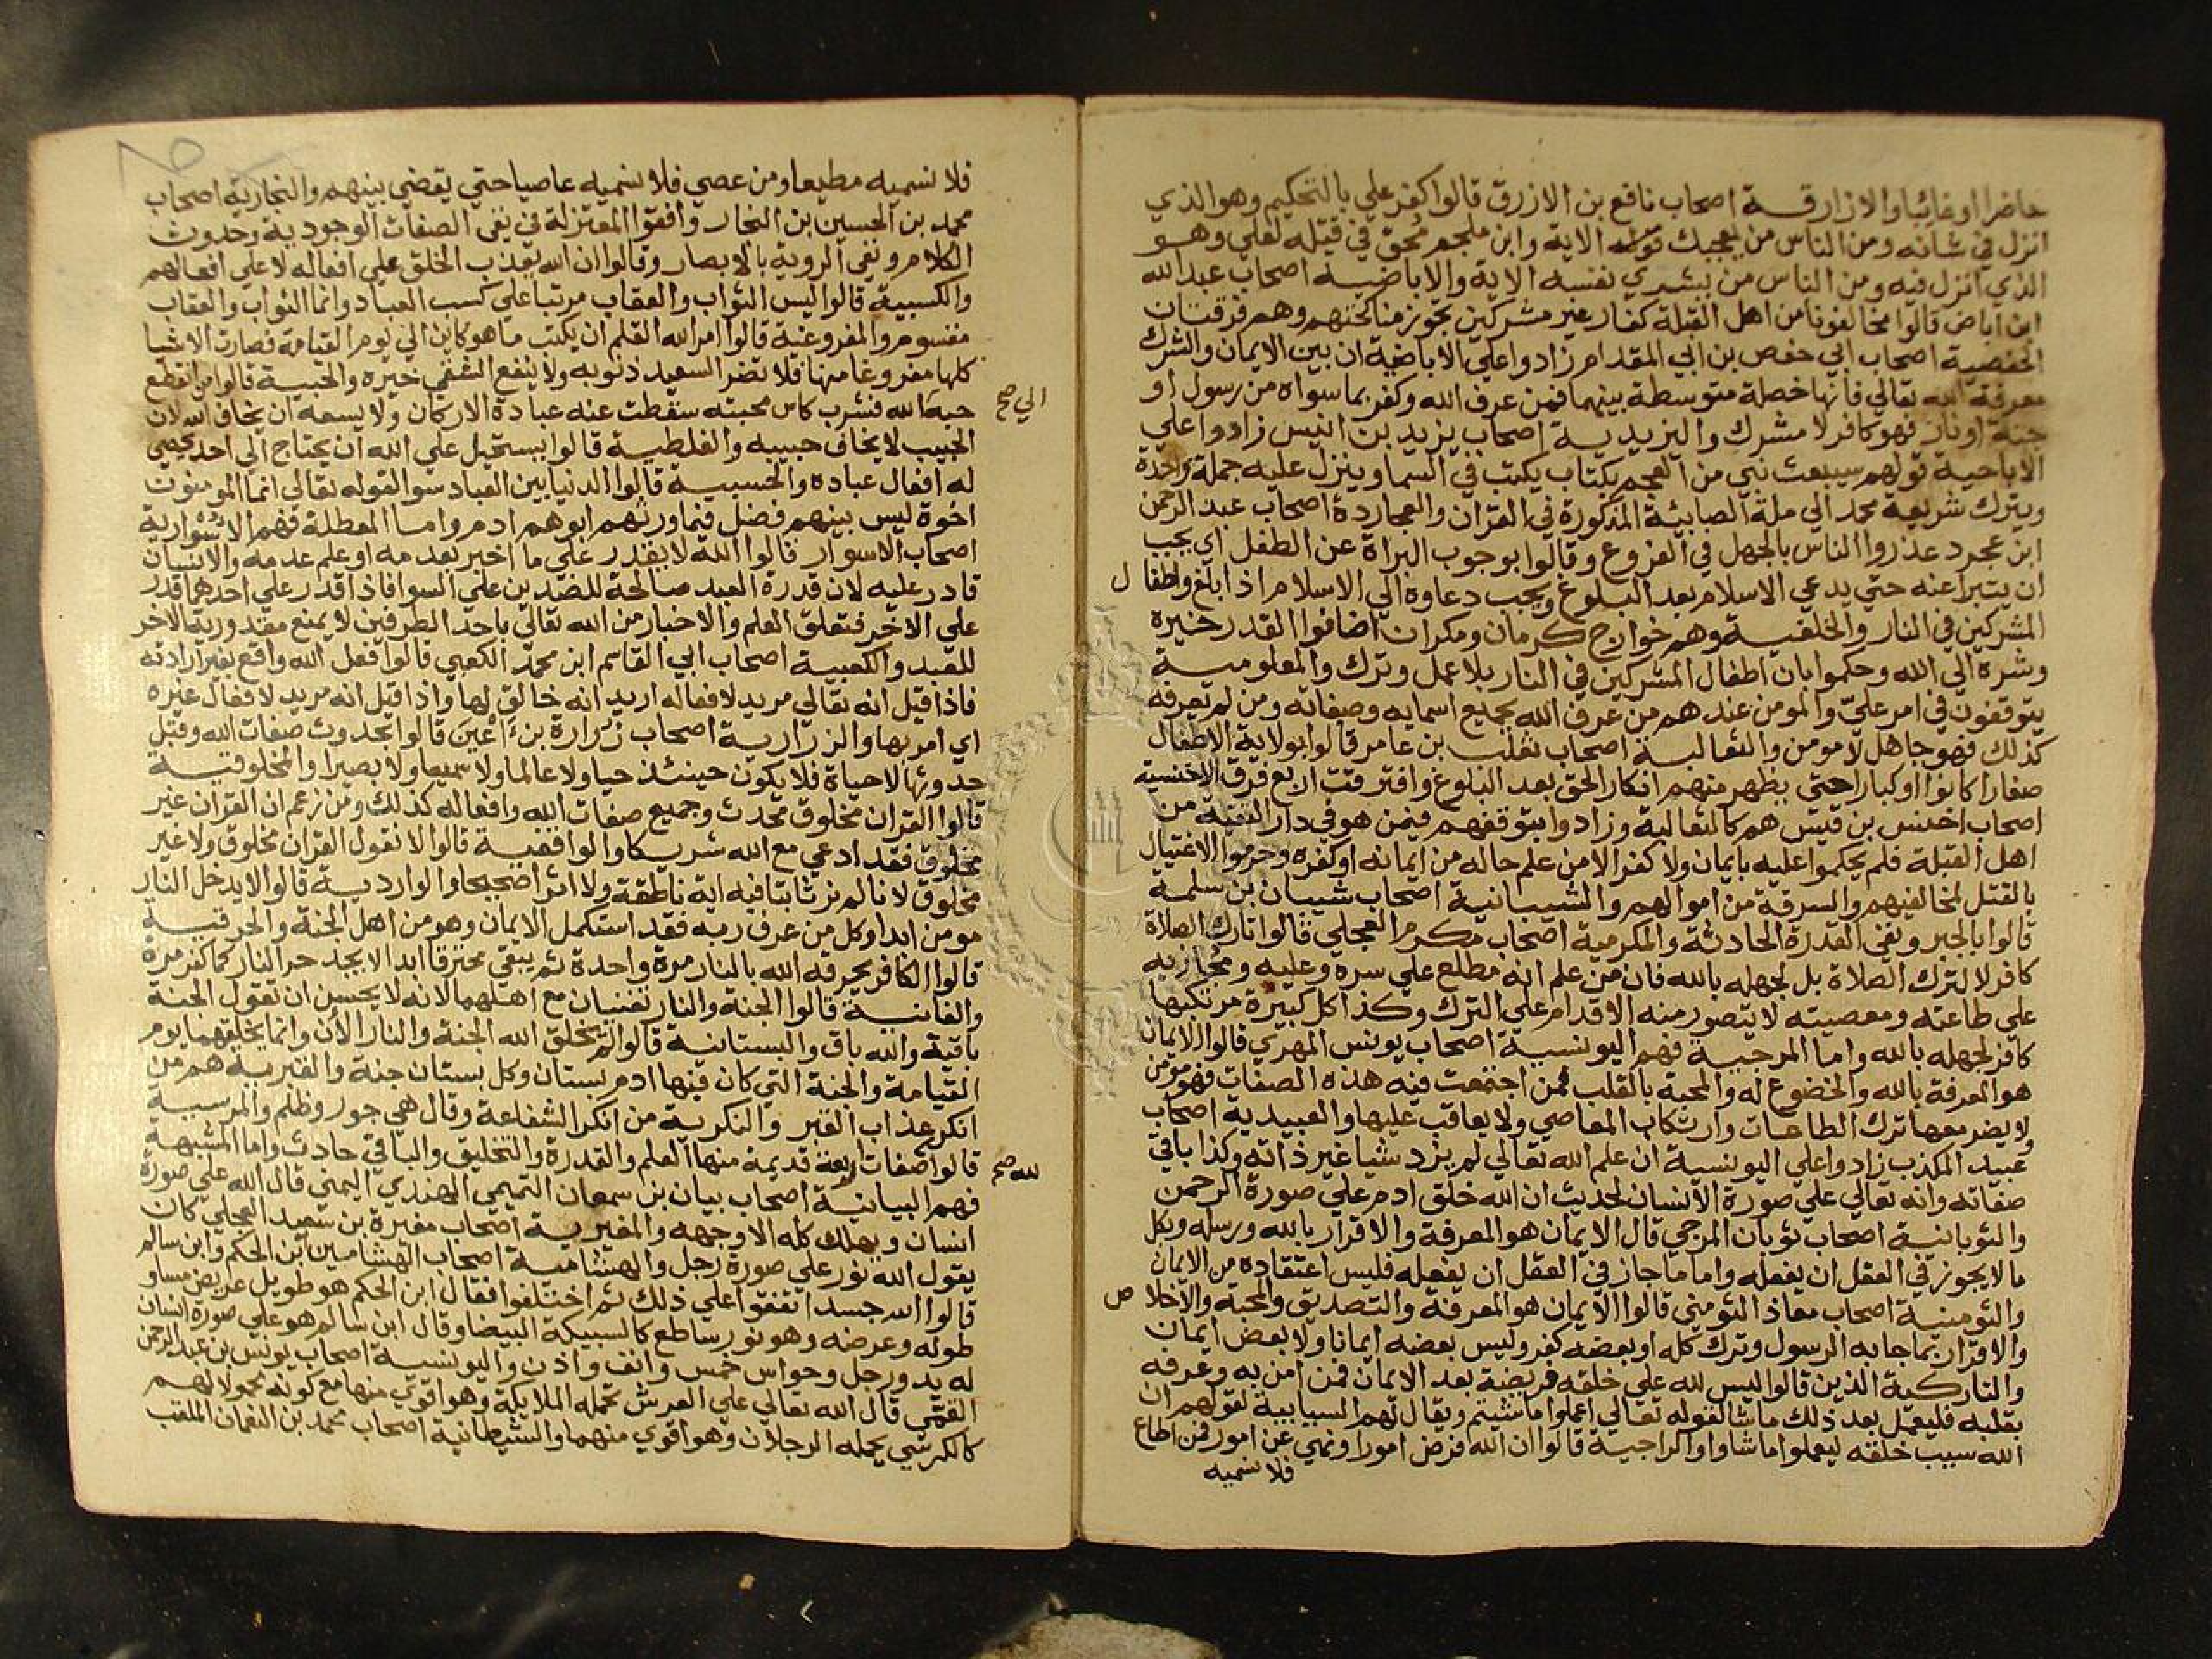 حاضرا او غائبا والازارقة اصحاب نافع بن الازرق قالوا كفر علي بالتحكيم وهو الذي
انزل في شانه ومن الناس من يعجبك قوله الاية وابن ملجم محق في قتله لعلي وهو
الذي انزل فيه ومن الناس من يشري نفسه الاية والاباضية اصحاب عبد الله
ابن اباض قالوا مخالفونا من اهل القبلة كفار غير مشركين تجوز مناكحتهم وهم فرقتان
الحفصية اصحاب ابي حفص بن ابي المقدام زادوا علي الاباضية ان بين الايمان والشرك
معرفة الله تعالي فانها خصلة متوسطة بينهما فمن عرف الله وكفر بما سواه من رسول او
جنة او نار فهو كافر لا مشرك واليزيدية اصحاب يزيد بن انيس زادوا علي
الاباحية قولهم سيبعث نبي من العجم بكتاب يكتب في السما وينزل عليه جملة واحدة
ويترك شريعة محمد الي ملة الصابئة المذكورة في القران والعجاردة اصحاب عبد الرحمن
ابن عجرد عذروا الناس بالجهل في الفروع وقالوا بوجوب البراة عن الطفل اي يجب
ان يتبرا عنه حتي يدعي الاسلام بعد البلوغ ويجب دعاوه الي الاسلام اذا بلغ واطفال
المشركين في النار والخلفية وهم خوارج كرمان ومكران اضافوا القدر خيره
وشره الي الله وحكموا بان اطفال المشركين في النار بلا عمل وترك والمعلومية
يتوقفون في امر علي والمومن عندهم من عرف الله بجميع اسمايه وصفاته ومن لم يعرفه
كذلك فهو جاهل لا مومن والثعالبة اصحاب ثعلب بن عامر قالوا بولاية الاطفال
صغارا كانوا او كبارا حتي يظهر منهم انكار الحق بعد البلوغ وافترقت اربع فرق الاخنسية
اصحاب اخنس بن قيس هم كالثعالبة وزادوا بتوقفهم فيمن هو في دار التقية من
اهل القبلة فلم يحكموا عليه بايمان ولا كفر الا من علم حاله من ايمانه او كفره وحرموا الاغتيال
بالقتل لمخالفيهم والسرقة من اموالهم والشيبانية اصحاب شيبان بن سلمة
قالوا بالجبر ونفي القدرة الحادثة والمكرمية اصحاب مكرم العجلي قالوا تارك الصلاة
كافر لا لترك الصلاة بل لجهله بالله فان من علم انه مطلع علي سره وعليه ومجازيه
علي طاعته ومعصيته لا يتصور منه الاقدام علي الترك وكذا كل كبيرة مرتكبها
كافر لجهله بالله واما المرجية فهم اليونسية اصحاب يونس المهري قالوا الايمان
هو المعرفة بالله والخضوع له والمحبة بالقلب فمن اجتمعت فيه هذه الصفات فهو مومن
لا يضر معها ترك الطاعات وارتكاب المعاصي ولا يعاقب عليها والعبيدية اصحاب
عبيد المكذب زادوا علي اليونسية ان علم الله تعالي لم يزد شيا غير ذاته وكذا باقي
صفاته وانه تعالي علي صورة الانسان لحديث ان الله خلق ادم علي صورة الرحمن
والثوبانية اصحاب ثوبان المرجي قال الايمان هو المعرفة والاقرار بالله ورسله وبكل
ما لا يجوز في العقل ان يفعله واما ما جاز في العقل ان يفعله فليس اعتقاده من الايمان
والثومنية اصحاب معاذ الثومني قالوا الايمان هو المعرفة والتصديق والمحبة والاخلاص
والاقرار بما جا به الرسول وترك كله او بعضه كفر وليس بعضه ايمانا ولا بعض ايمان
والتاركية الذين قالوا ليس لله علي خلقه فريضة بعد الايمان فمن امن به وعرفه
بقلبه فليعمل بعد ذلك ما شا لقوله تعالي اعملوا ما شيتم ويقال لهم السبابية لقولهم ان
الله سيب خلقه ليعملوا ما شاوا والراجية قالوا ان الله فرض امورا ونهي عن امور فمن اطاع
فلا نسميه
فلا نسميه مطيعا ومن عصي فلا نسميه عاصيا حتي يقضي بينهم والنجارية اصحاب
محمد بن الحسين بن النجار وافقوا المعتزلة في نفي الصفات الوجودية وحدوث
الكلام ونفي الروية بالابصار وقالوا ان الله يعذب الخلق علي افعاله لا علي افعالهم
والكسبية قالوا ليس الثواب والعقاب مرتبا علي كسب العباد وانما الثواب والعقاب
مقسوم والمفروغية قالوا امر الله القلم ان يكتب ما هو كاين الي يوم القيامة فصارت الاشيا
كلها مفروغا منها فلا تضر السعيد ذنوبه ولا ينفع الشقي خيره والحبية قالوا من انقطع
الي صح
حبه الله فشرب كاس محبته سقطت عنه عبادة الاركان ولا يسعه ان يخاف الله لان
الحبيب لا يخاف حبيبه والغلطية قالوا يستحيل علي الله ان يحتاج الي احد يحصي
له افعال عباده والخسبية قالوا الدنيا بين العباد سوا لقوله تعالي انما المومنون
اخوة ليس بينهم فضل فيما ورثهم ابوهم ادم واما المعطلة فهم الاسوارية
اصحاب الاسوار قالوا الله لا يقدر علي ما اخبر بعدمه او علم عدمه والانسان
قادر عليه لان قدرة العبد صالحة للضدين علي السوا فاذا قدر علي احدهما قدر
علي الاخر فتعلق العلم والاخبار من الله تعالي باحد الطرفين لا يمنع مقدورية الاخر
للعبد والكعبية اصحاب ابي القاسم ابن محمد الكعبي قالوا فعل الله واقع بغير ارادته
فاذا قيل انه تعالي مريد لافعاله اريد انه خالق لها واذا قيل انه مريد لافعال غيره
اي امر بها والزرارية اصحاب زرارة بن اعين قالوا بحدوث صفات الله وقبل
حدوثها لا حياة فلا يكون حينئذ حيا ولا عالما ولا سميعا ولا بصيرا والمخلوقية
قالوا القران مخلوق محدث وجميع صفات الله وافعاله كذلك ومن زعم ان القران غير
مخلوق فقد ادعي مع الله شريكا والواقفية قالوا لا نقول القران مخلوق ولا غير
مخلوق لانا لم نر ثابتا فيه اية ناطقة ولا اثرا صحيحا والواردية قالوا لا يدخل النار
مومن ابدا وكل من عرف ربه فقد استكمل الايمان وهو من اهل الجنة والحرقية
قالوا الكافر يحرقه الله بالنار مرة واحدة ثم يبقي محترقا ابدا لا يجد حر النار كما كفر مرة
والفانية قالوا الجنة والنار تفنيان مع اهلهما لانه لا يحسن ان تقول الجنة
باقية والله باق والبستانية قالوا لم يخلق الله الجنة والنار الان وانما يخلقهما يوم
القيامة والجنة التي كان فيها ادم بستان وكل بستان جنة والقبرية هم من
انكر عذاب القبر والنكرية من انكر الشفاعة وقال هي جور وظلم والمرسية
قالوا صفات اربعة قديمة منها العلم والقدرة والتخليق والباقي حادث واما المشبهة
لله صح
فهم البيانية اصحاب بيان بن سمعان التميمي الهندي اليمني قال الله علي صورة
انسان ويهلك كله الا وجهه والمغيرية اصحاب مغيرة بن سعيد العجلي كان
يقول الله نور علي صورة رجل والهشامية اصحاب الهشامين ابن الحكم وابن سالم
قالوا الله جسد اتفقوا علي ذلك ثم اختلفوا فقال ابن الحكم هو طويل عريض مساو
طوله وعرضه وهو نور ساطع كالسبيكة البيضا وقال ابن سالم هو علي صورة انسان
له يد ورجل وحواس خمس وانف واذن واليونسية اصحاب يونس بن عبد الرحمن
القمي قال الله تعالي علي العرش تحمله الملايكة وهو اقوي منها مع كونه محمولا لهم
كالكرسي يحمله الرجلان وهو اقوي منهما والشيطانية اصحاب محمد بن النعمان الملقب